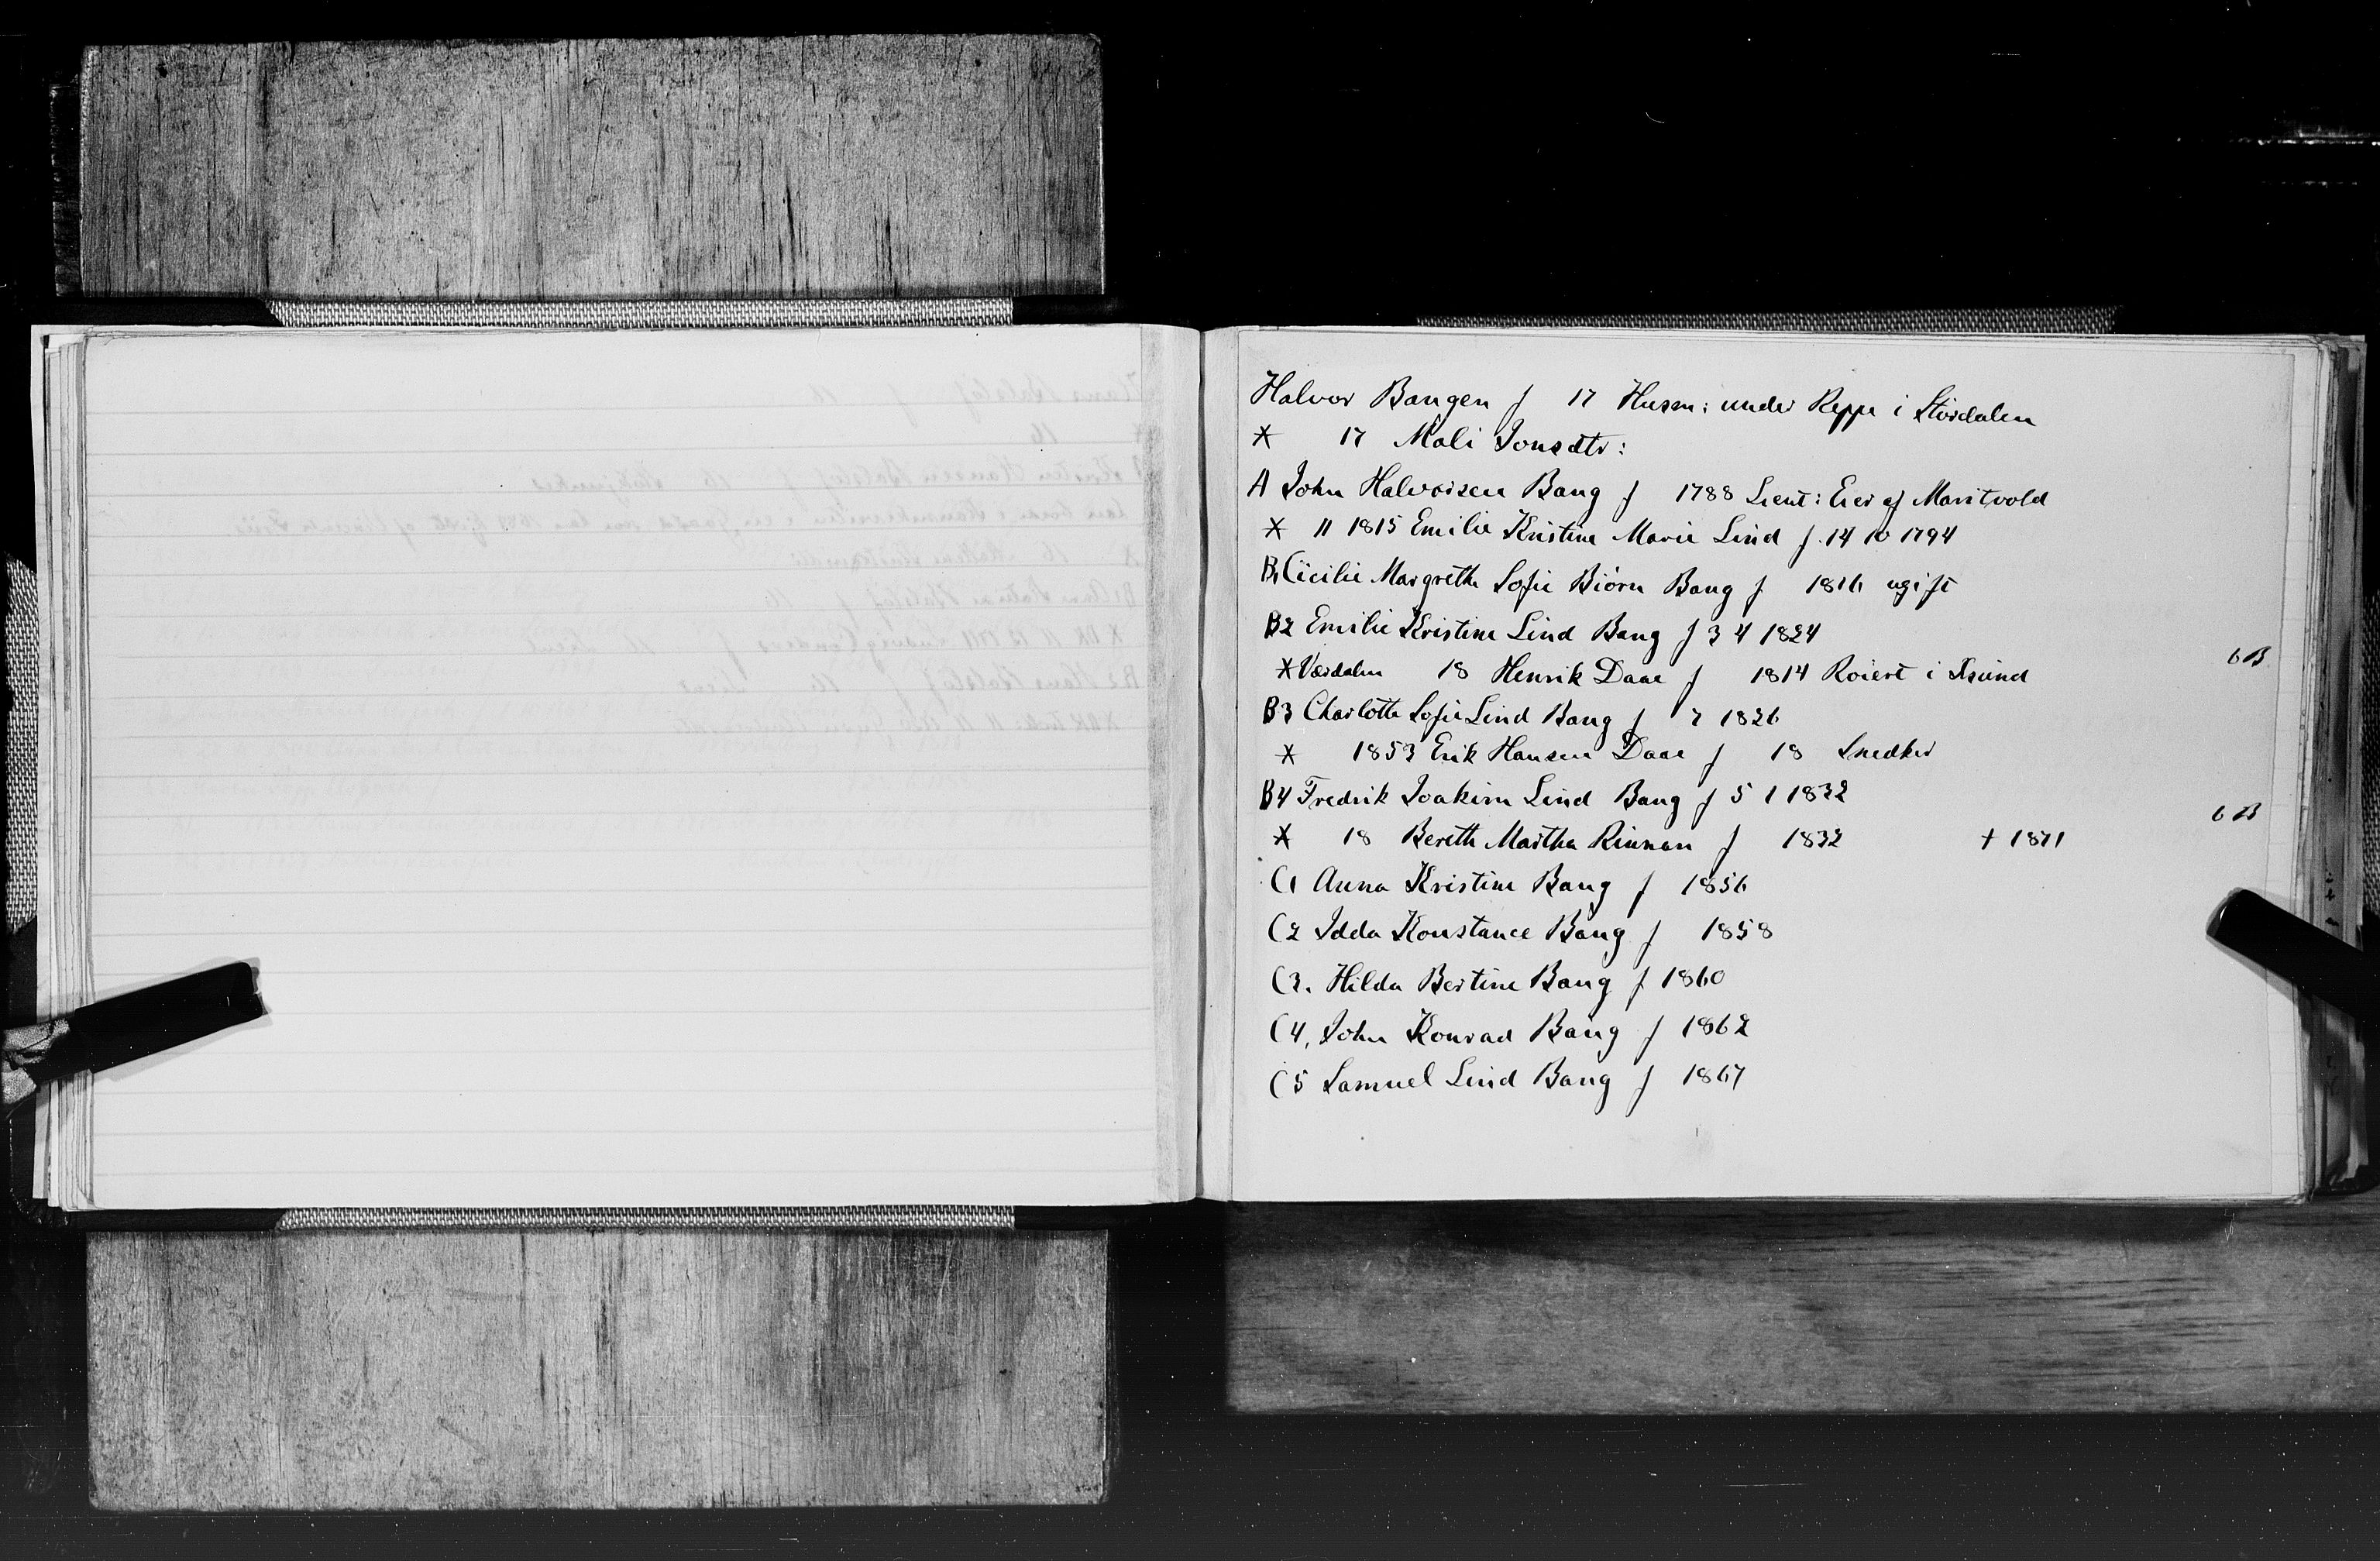 Halvor Bangen f 17 Husm: under Reppe i Størdalen
* 17 Mali Jonsdtr:
A John Halvorsen Bang f 1788 Lieut: Eier af Maritvold
* 11 1815 Emilie Kristine Marie Lind f. 14 10 1794
B1 Cicilie Margrethe Sofie Biørn Bang f 1816 ugift
B2 Emilie Kristine Lind Bang f 3 4 1824
* Værdalen 18 Henrik Daae f 1814 Roiert i Xsund 6 B
B3 Charlotte Sofie Lind Bang f 7 1826
* 1853 Erik Hansen Daae f 18 Snedker
B4 Fredrik Joakim Lind Bang f 5 1 1832
* 18 Bereth Martha Rinnan f 1832 † 1871 6 B
C1 Anna Kristine Bang f 1856
C2 Idda Konstance Bang f 1858
C3. Hilda Bertine Bang f 1860
C4, John Konrad Bang f 1862
C5 Samuel Lind Bang f 1867